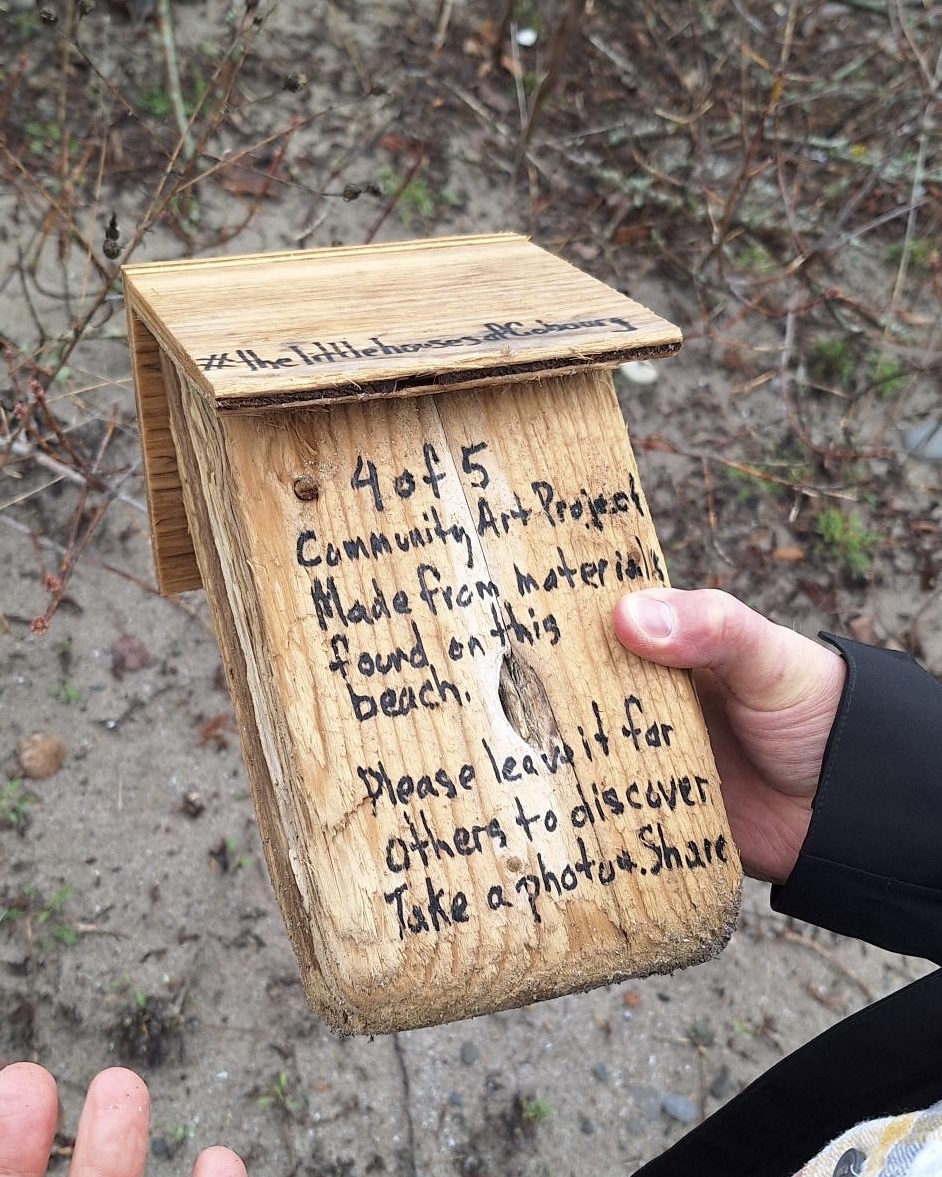 #thelittlehousesofCobourg
4 of 5
Community Art Project
Made from materials
found on this
beach.
Please leave it for
others to discover
Take a photo &. Share